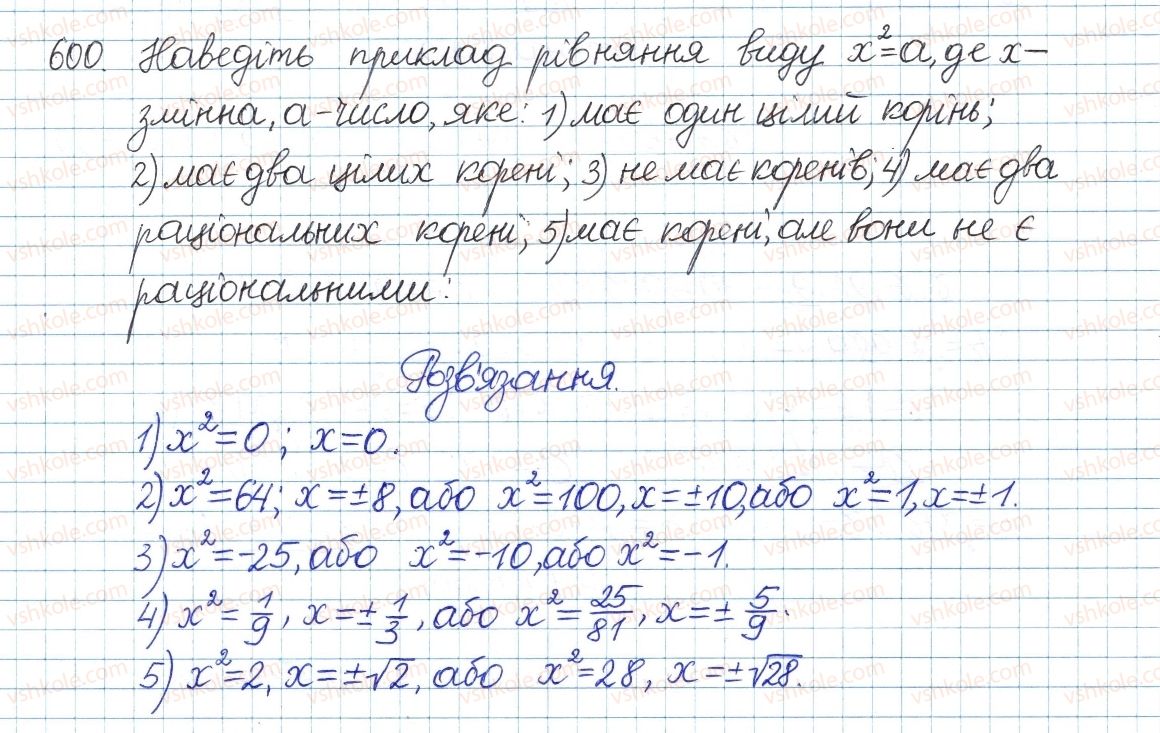 600. Наведіть приклад рівняння виду x²=a, де x –
змінна, a – число, яке: 1) має один цілий корінь;
2) має два цілих корені; 3) не має коренів; 4) має два
раціональних корені; 5) має корені, але вони не є
раціональними:
Розв'язання.
1) x²=0; x=0.
2) x²=64; x=±8, або x²=100, x=±10, або x²=1, x=±1.
3) x²=-25, або x²=-10, або x²=-1.
4) x²=1/9, x=±1/3, або x²=25/81, x=±5/9.
5) x²=2, x=±√2, або x²=28, x=±√28.
vshkole.com